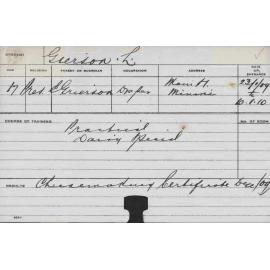 Grierson. L.
AGE RELIGION PARENT OR GUARDIAN OCCUPATION ADDRESS DATE OF ENTRANCE
17 Pres. Grierson Main St. 23/2/09
10.1.10
COURSE OF TRAINING NO. OF ROOM
Practical
Dairy Period
RESULTS Cheesemaking Certificate Dec/09